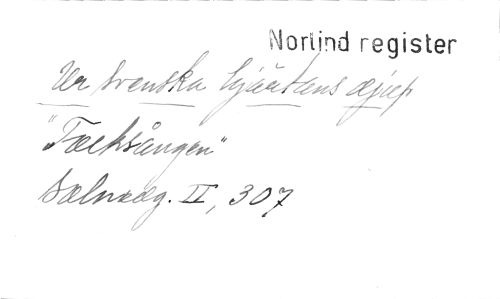 Norlind register
Ur svenska hjärtans djup
"Folksången"
Salmeog. II, 307